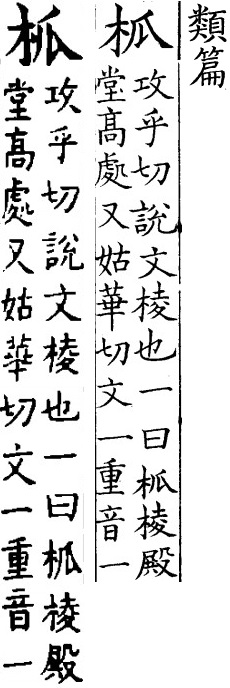 類篇
柧
攻乎切說文棱也一曰柧棱殿
堂高處又姑華切文一重音一
柧
攻乎切說文棱也一曰柧棱殿
堂高處又姑華切文一重音一